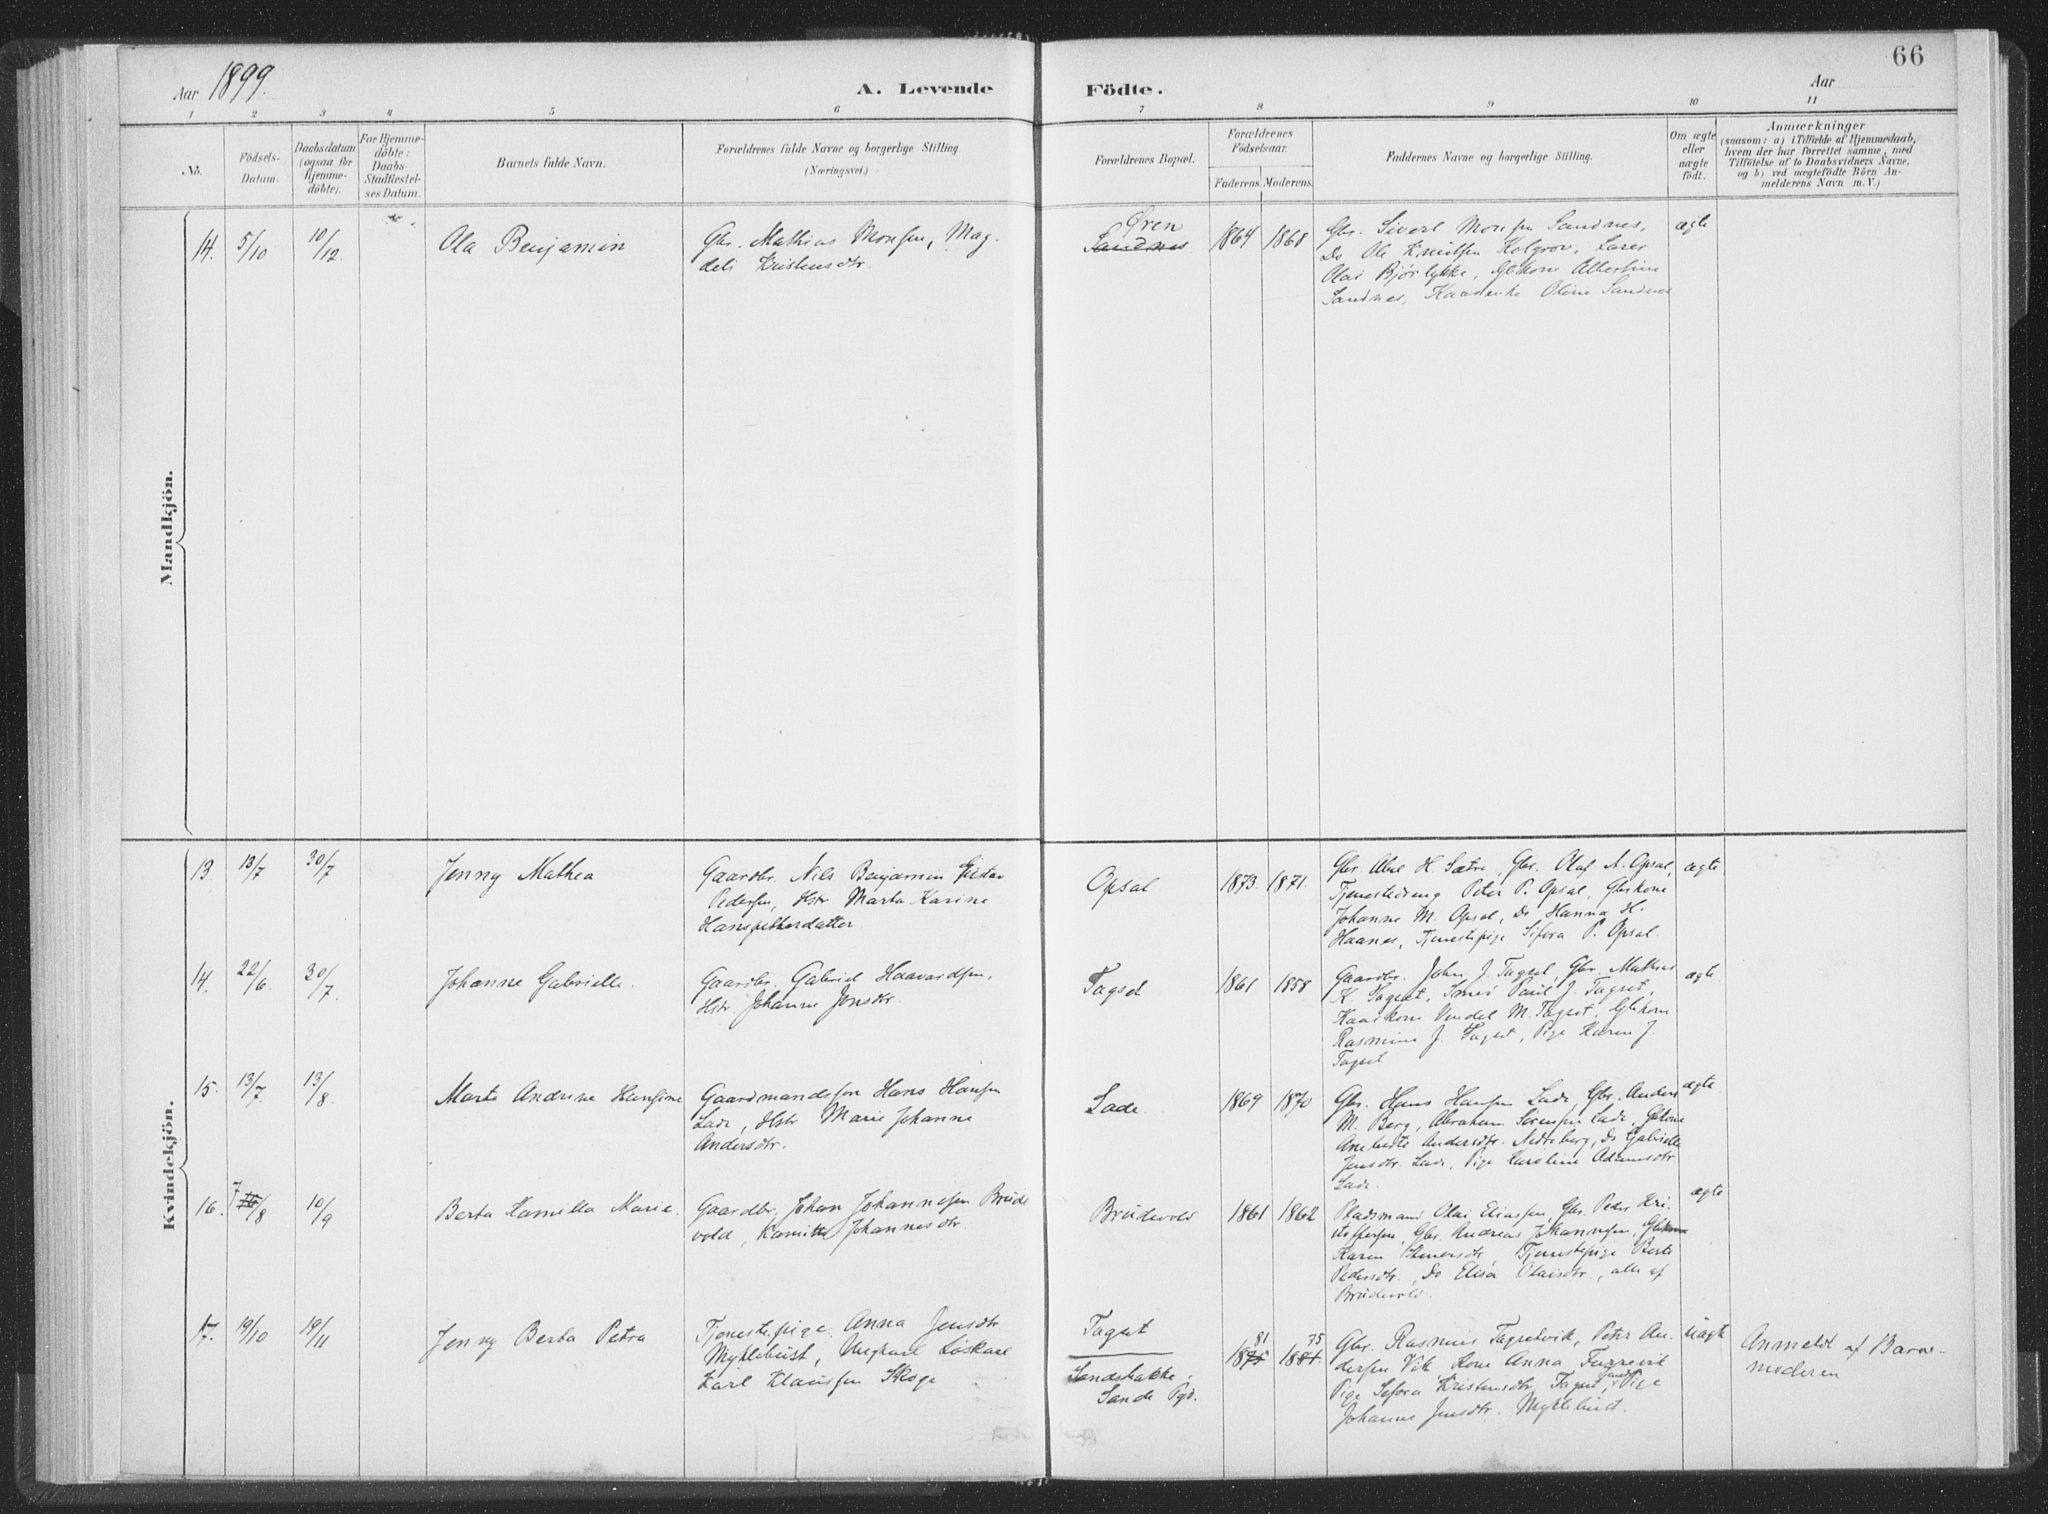 66
Aar 1899.
A. Levende Födte.
Aar
1 2 3 4 5 6 7 8 9 10 11
No.
Födsels-
Datum.
Daabsdatum
(ogsaa for
Hjemme-
döbte).
For Hjemme-
döbte:
Daabs-
Stadfæstel-
ses Datum.
Barnets fulde Navn.
Forældrenes fulde Navne og borgerlige Stilling.
(Næringsvei.)
Forældrenes Bopæl.
Forældrenes
Födselsaar.
Faderens. Moderens.
Faddernes Navne og borgerlige Stilling.
Om ægte
eller
uægte
födt.
Anmærkninger
(saasom: a) i Tilfælde af Hjemmedaab,
hvem der har forrettet samme, med
Tilföielse af to Daabsvidners Navne,
og b) ved uægtefödte Börn An-
melderens Navn m. V.)
Mandkjön.
14. 5/10 10/12. Ola Benjamin
Gbr. Mathias Monsen, Mag-
deli Kristensdtr.
Øren
Sandnes
1864 1868
Gbr. Sivert Monsen Sandnes,
Do Ole Knutsen Kolgrov, Lærer
Olai Bjørlykke, Gbkone Albertine
Sandnes, Oline Sandnes
ægte
Kvindekjön.
13. 13/7 30/7 Jenny Mathea
Gaardbr. Nils Benjamin Gustav
Pedersen, Hstr Marta Karine
Hanspettersdatter
Opsal
1873. 1871.
Gbr. Abel H. Sætre, Gbr. Olaf A. Opsal,
Tjenestedreng Peter P. Opsal, Gbkone
Johanne M. Opsal, Do Hanna H.
Haanes, Tjenestepige Sifora P. Opsal.
ægte
14. 22/6. 30/7. Johanne Gabrielle.
Gaardbr. Gabriel Haavardsen,
Hstr Johanne Jensdtr.
Tagset
1861 1858
Gaardbr. John J. Tagset, Gbr. Mathias
K. Tagset, Smed Paul J. Tagset,
Vendel M. Tagset, Gbkone
Rasmine J. Tagset, Pige Karen J.
Tagset
ægte
15. 13/7. 13/8. Marte Andrine Hansine
Gaardmandssøn Hans Hansen
Lade, Hstr Marie Johanne
Andersdtr.
Lade.
1869 1870
Gbr. Hans Hansen Lade, Gbr. Anders
M. Berg, Abraham Sørensen Lade, Gbkone
Andersdtr. Nedreberg, Do Gabrielle
Jensdtr. Lade, Pige Karoline Adamsdtr.
Lade.
ægte
16. 7 16/8 10/9 Berta Kamilla Marie.
Gaardbr. Johan Johannesen Brude
vold, Kamilla Johannesdtr.
Brudevold
1861 1862
Pladsmand Olai Eliassen, Gbr. Peder Kri-
stoffersen, Gbr. Andreas Johannesen, Gbkone
Karen Tjenestepige Berte
Pedersdtr., Do Elisa Olaisdtr., alle af
Brudevold.
ægte
17. 19/10 19/11 Jenny Berta Petra
Tjenestepige Anna Jensdtr.
Myklebust, Ungkarl Løskarl
Karl Klausen Skoge
Tagset
Sandsbakke,
Sande Pgd.
81 75
1875 1881
Gbr. Rasmus Tagsetvik, Peter An-
dersen Vik, Kone Anna
Pige Sefora Kristensdtr. Tagset, Pige
Johanne Jensdtr. Myklebust.
uægte
Anmeldt af Barne-
moderen